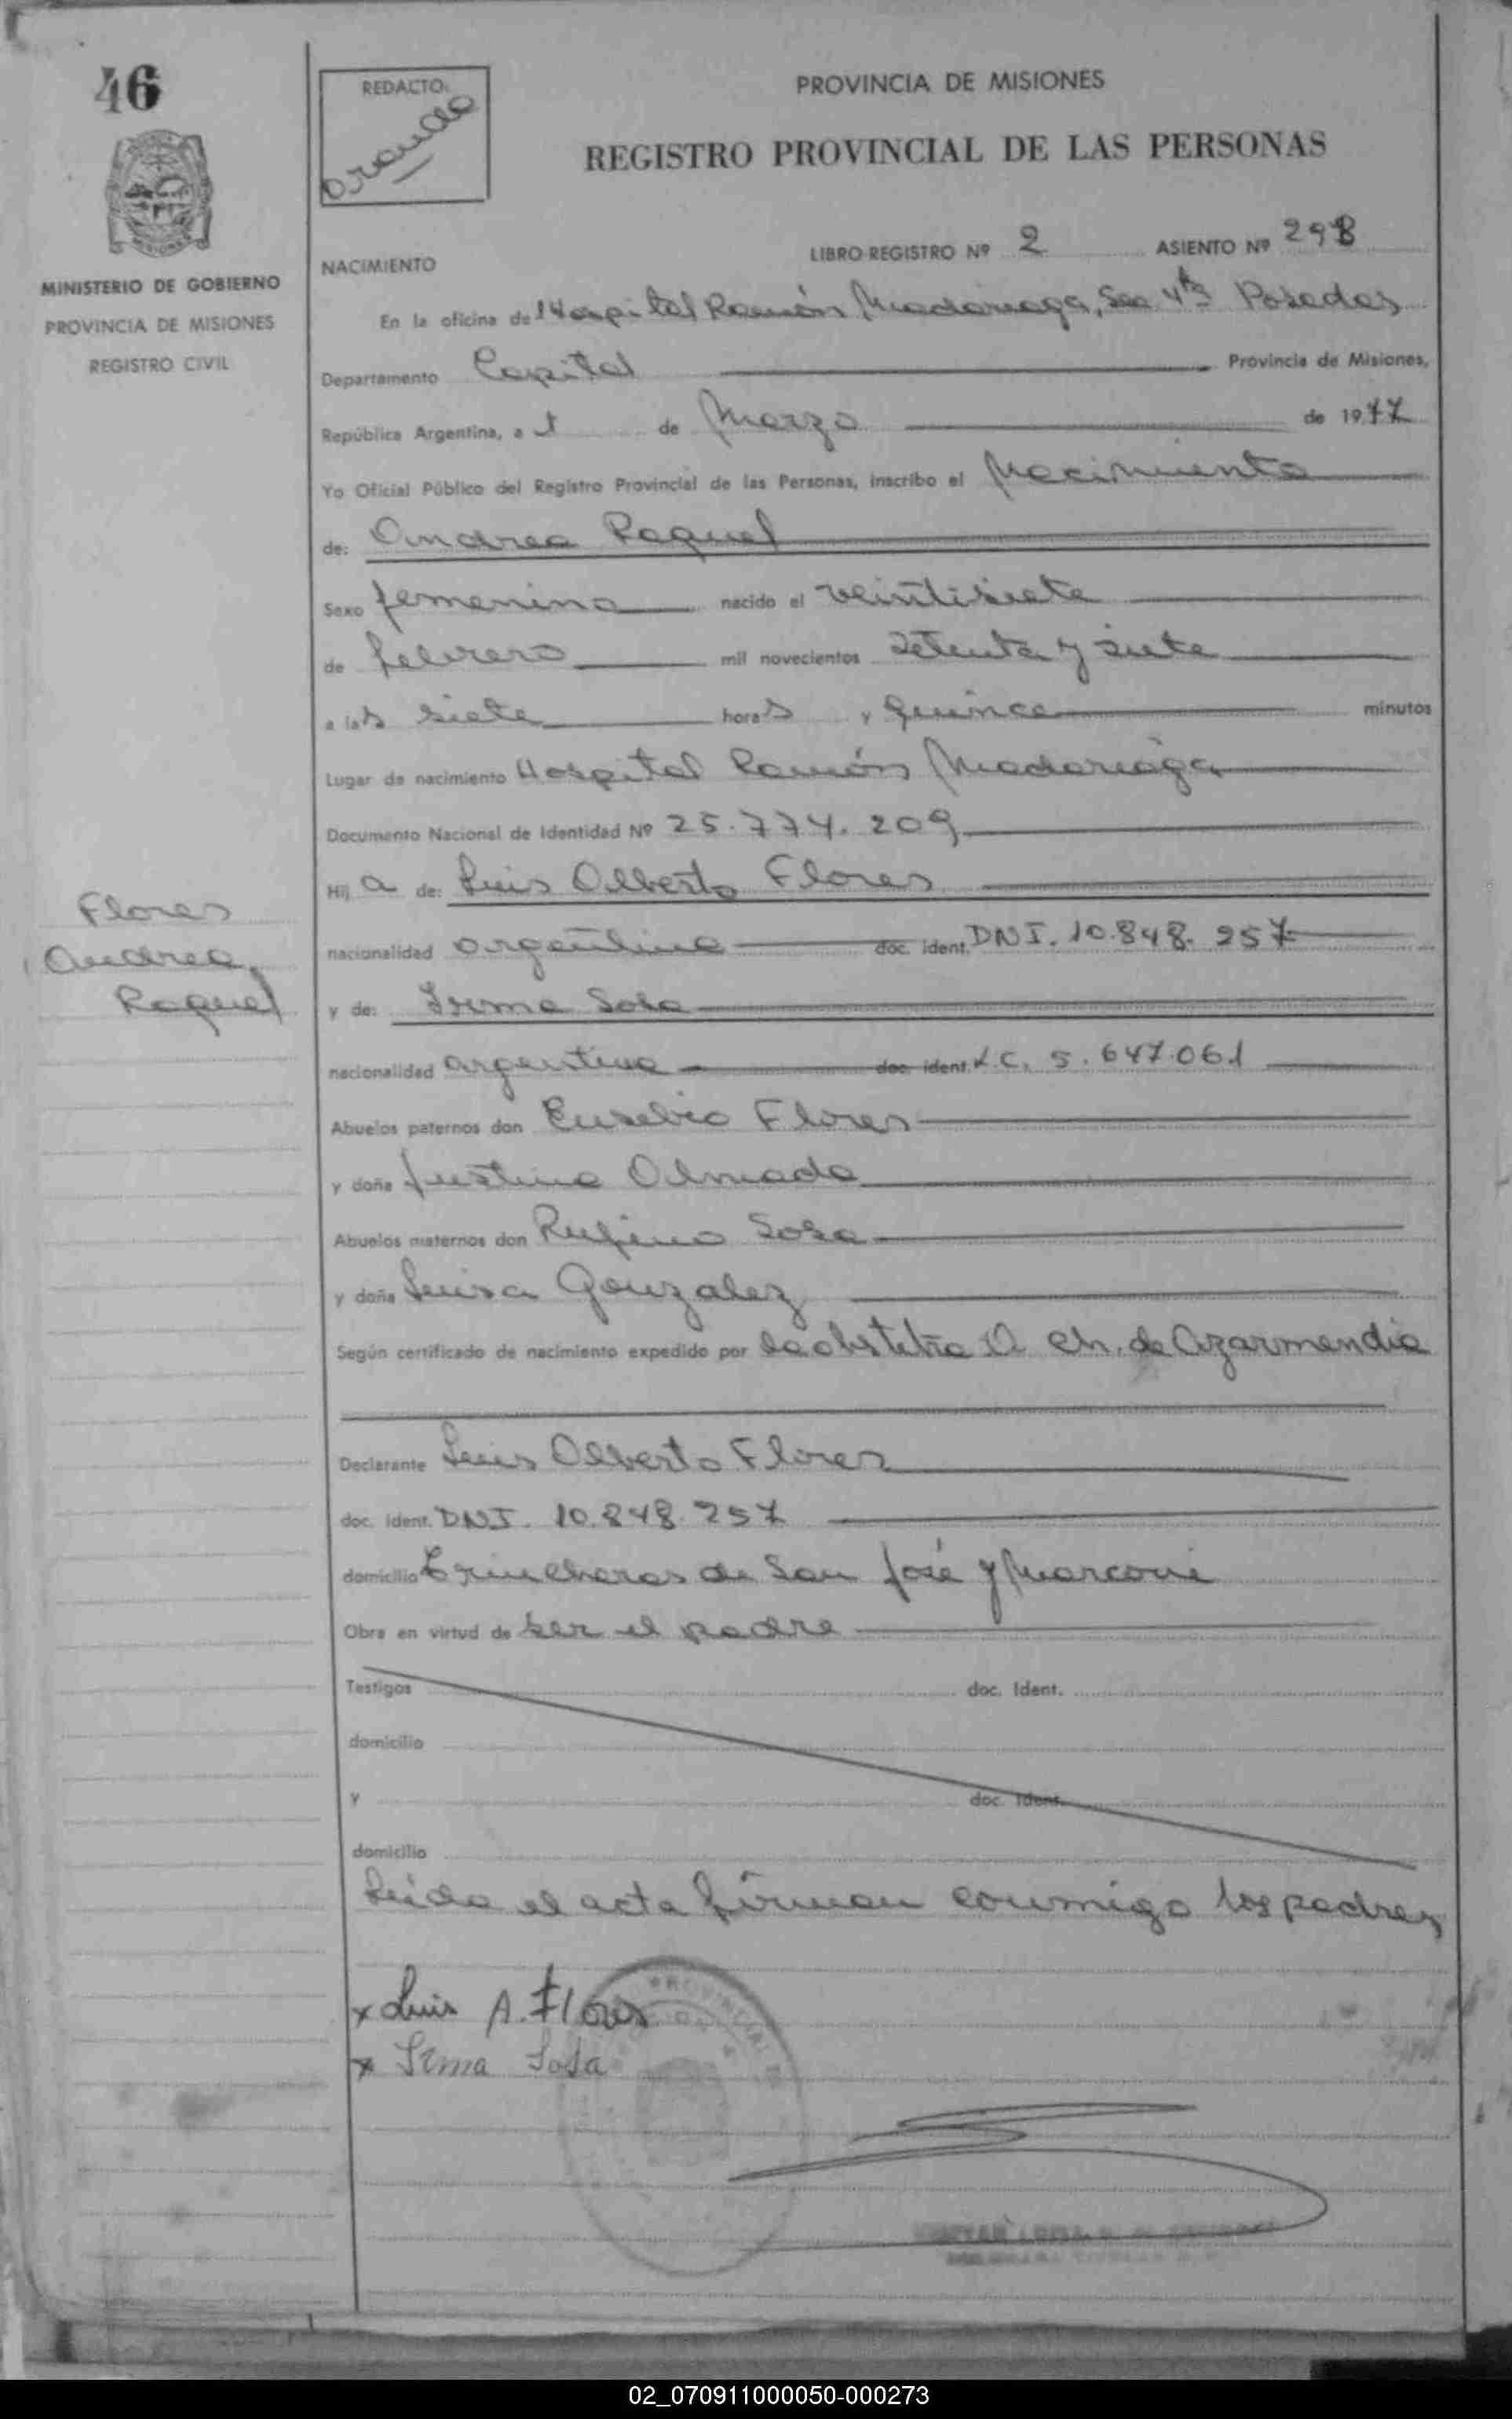 46
REDACTO:
PROVINCIA DE MISIONES
REGISTRO PROVINCIAL DE LAS PERSONAS
MINISTERIO DE GOBIERNO
PROVINCIA DE MISIONES
REGISTRO CIVIL
NACIMIENTO
LIBRO REGISTRO Nº 2 ASIENTO Nº 298
En la oficina de Hospital Ramón Madariaga, Sec 4ta Posadas
Departamento Capital Provincia de Misiones,
República Argentina, a 1 de Marzo de 1977
Yo Oficial Público del Registro Provincial de las Personas, inscribo el Nacimiento
de: Andrea Raquel
Sexo femenino nacido el veintisiete
de febrero mil novecientos setenta y siete
a las siete horas y quince minutos
Lugar de nacimiento Hospital Ramón Madariaga
Documento Nacional de Identidad Nº 25.774.209
Hija de: Luis Alberto Flores
nacionalidad argentina doc. ident. DNI. 10.848.257
y de: Irma Sosa
nacionalidad argentina doc. ident. L.C. 5.647.061
Abuelos paternos don Eusebio Flores
y doña Justina Almada
Abuelos maternos don Rufino Sosa
y doña Luisa Gonzalez
Según certificado de nacimiento expedido por la obstetra A Ch. de Azarmendia
Declarante Luis Alberto Flores
doc. ident. DNI. 10.848.257
domicilio Trincheras de San José y Marconi
Obra en virtud de ser el padre
Testigos doc. Ident.
domicilio
y doc. Ident.
domicilio
Leida el acta firman conmigo los padres
x Luis A. Flores
x Irma Sosa
Flores
Andrea
Raquel
02_070911000050-000273